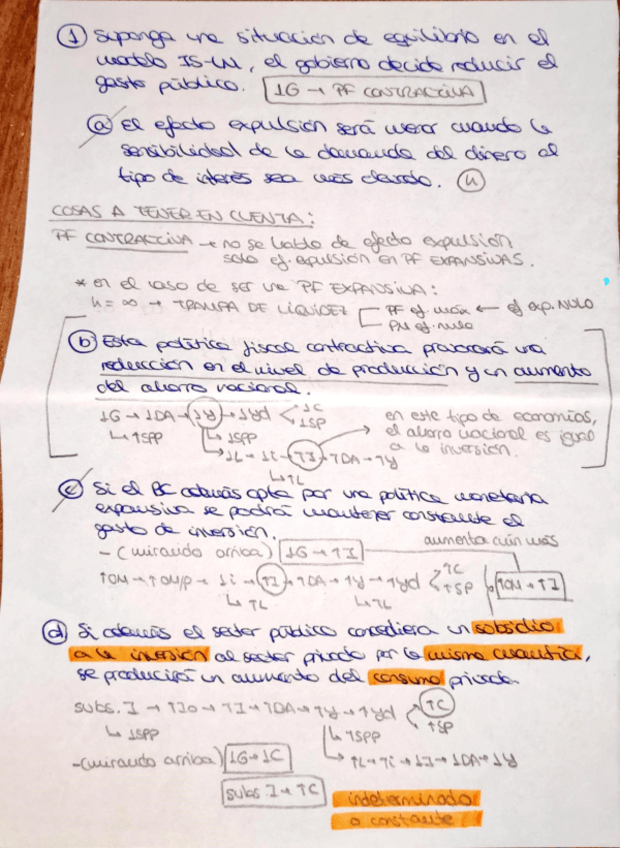 ① Suponga una situación de equilibrio en el
modelo IS-LM, el gobierno decide reducir el
gasto público. ↓G → PF CONTRACTIVA
ⓐ El efecto expulsión será menor cuando la
sensibilidad de la demanda del dinero al
tipo de interés sea más elevado. ⓗ
COSAS A TENER EN CUENTA:
PF CONTRACTIVA → no se habla de efecto expulsión
solo ef. expulsión en PF EXPANSIVAS.
* en el caso de ser una PF EXPANSIVA:
h = ∞ → TRAMPA DE LIQUIDEZ PF ef. máx ← ef exp. NULO
PM ef. nula
ⓑ Esta política fiscal contractiva provocará una
reducción en el nivel de producción y un aumento
del ahorro nacional.
↓G → ↓DA → ↓Y → ↓Yd ↓C
↳ ↑SPP ↳ ↓SPP ↓SP
↳ ↓L → ↓i → ↑I → ↑DA → ↑Y
↳ ↑L
en este tipo de economías,
el ahorro nacional es igual
a la inversión.
ⓒ Si el BC además opta por una política monetaria
expansiva se podrá mantener constante el
gasto de inversión.
- (mirando arriba) ↓G → ↑I aumenta aún más
↑OM → ↑OM/P → ↓i → ↑I → ↑DA → ↑Y → ↑Yd ↑C ↑OM → ↑I
↳ ↑L ↳ ↑L ↑SP
ⓓ Si además el sector público concediera un subsidio
a la inversión al sector privado por la misma cuantía,
se produciría un aumento del consumo privado.
subs. I → ↑Io → ↑I → ↑DA → ↑Y → ↑Yd ↑C
↳ ↓SPP ↳ ↑SPP ↑SP
↳ ↑L → ↑i → ↓I → ↓DA → ↓Y
- (mirando arriba) ↓G → ↓C
subs I → ↑C indeterminado
o constante